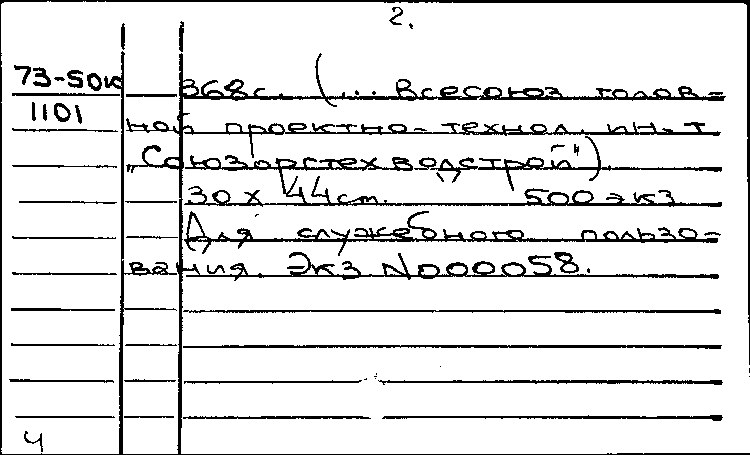 2.
73-50к 368с. (... Всесоюз голов-
1101
ной проектно-технол. ин-т
„Союзоргтехводстрой")
30 х 44 ст. 500 экз
Для служебного пользо-
вания. Экз N000058.
ч